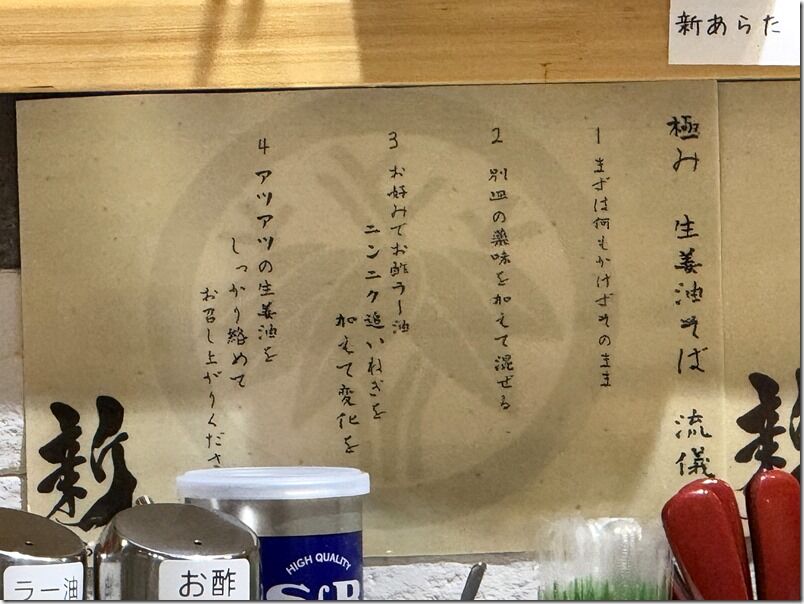 新あらた
極み 生姜油そば 流儀
1 まずは何もかけずそのまま
2 別皿の薬味を加えて混ぜる
3 お好みでお酢ラー油
ニンニク追いねぎを
加えて変化を
4 アツアツの生姜油を
しっかり絡めて
お召し上がりくださ
新
新
ラー油
お酢
HIGH QUALITY
S&B